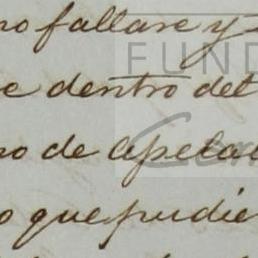 no fallare y
e dentro del
no de apela
o que pudie
FUND